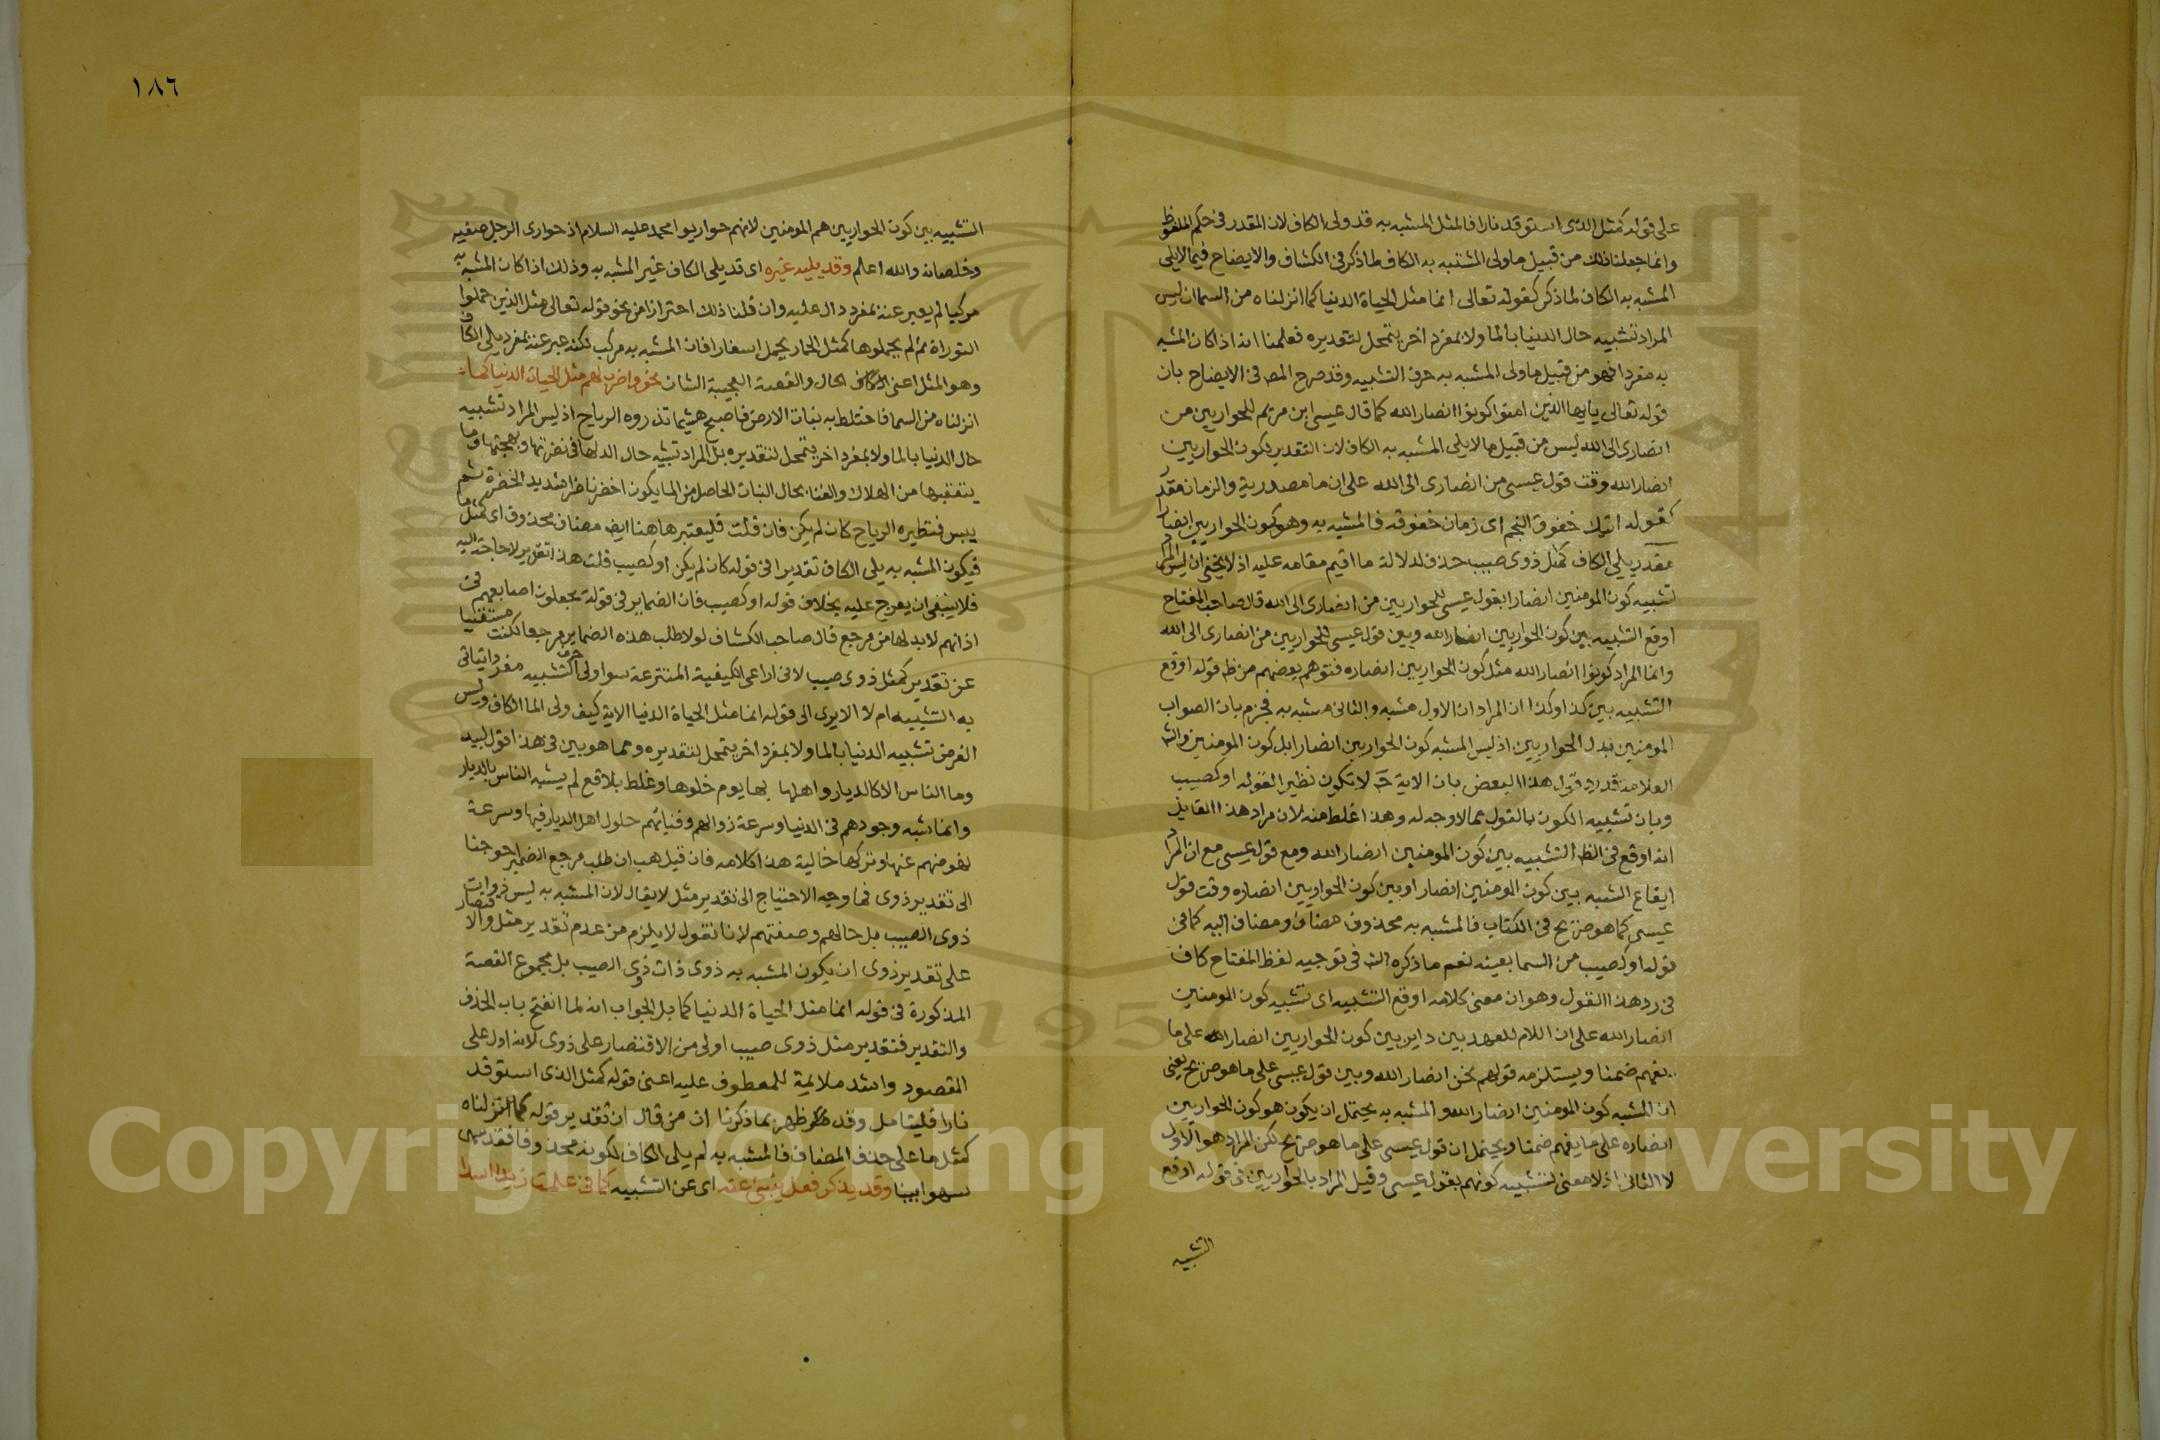 على قوله كمثل الذى استوقد نارا فالمثل المشبه به قد ولى الكاف لان المقدر فى حكم الملفوظ
وانما جعلنا ذلك من قبيل ما ولى المشبه به الكاف لما ذكر فى الكشاف والايضاح فيما لا يلى
المشبه به الكاف لما ذكر كقوله تعالى انما مثل الحياة الدنيا كما انزلناه من السما ان ليس
المراد تشبيه حال الدنيا بالما ولا بمفرد اخر يتمحل لتقديره فعلمنا انه اذا كان المشبه
به مفردا فهو من قبيل ما ولى المشبه به حرف التشبيه وقد صرح المص فى الايضاح بان
قوله تعالى يايها الذين امنوا كونوا انصار الله كما قال عيسى ابن مريم للحواريين من
انصارى الى الله ليس من قبيل ما لا يلى المشبه به الكاف لان التقدير ككون الحواريين
انصار الله وقت قول عيسى من انصارى الى الله على ان ما مصدرية والزمان مقدر
كقوله اتيك خفوق النجم اى زمان خفوقه فالمشبه به وهو كون الحواريين انصارا
مقدر يلى الكاف كمثل ذوى صيب حذف لدلالة ما اقيم مقامه عليه اذ لا يخفى ان ليس المراد
تشبيه كون المومنين انصارا بقول عيسى للحواريين من انصارى الى الله قال صاحب المفتاح
اوقع التشبيه بين كون الحواريين انصار الله وبين قول عيسى للحواريين من انصارى الى الله
وانما المراد كونوا انصار الله مثل كون الحواريين انصاره فتوهم بعضهم من ظ قوله اوقع
التشبيه بين كذا وكذا ان المراد ان الاول مشبه والثانى مشبه به فجزم بان الصواب
المومنين بدل الحواريين اذ ليس المشبه كون الحواريين انصارا بل كون المومنين والشا
العلامة قد رد قول هذا البعض بان الاية ح لا تكون نظير القوله او كصيب
وبان تشبيه الكون بالقول مما لا وجه له وهذا غلط منه لان مراد هذا القايل
انه اوقع فى الظ التشبيه بين كون المومنين انصار الله ومع قول عيسى مع ان المراد
ايقاع الشبه بين كون المومنين انصارا وبين كون الحواريين انصاره وقت قول
عيسى كما هو صريح فى الكتاب فالمشبه به محذوف مضاف ومضاف اليه كما فى
قوله او كصيب من السما بعينه نعم ما ذكره الش فى توجيه لفظ المفتاح كاف
فى رد هذا القول وهو ان معنى كلامه اوقع التشبيه اى تشبيه كون المومنين
انصار الله على ان اللام للعهد بين داير بين كون الحواريين انصار الله على ما
يفهم ضمنا ويستلزمه قولهم نحن انصار الله وبين قول عيسى على ما هو صريح يعنى
ان المشبه كون المومنين انصار الله والمشبه به يحتمل ان يكون هو كون الحواريين
انصاره على ما يفهم ضمنا ويحتمل ان قول عيسى على ما هو صريح لكن المراد هو الاول
لا الثانى اذ لا معنى لتشبيه كونهم بقول عيسى وقيل المراد بالحواريين فى قوله اوقع
التشبيه
١٨٦
التشبيه بين كون الحواريين هم المومنين لانهم حواريوا محمد عليه السلام اذ حوارى الرجل صفيه
وخلصانه والله اعلم وقد يليه غيره اى قد يلى الكاف غير المشبه به وذلك اذا كان المشبه به
مركبا لم يعبر عنه بمفرد دال عليه وان قلنا ذلك احترازا من نحو قوله تعالى مثل الذين حملوا
التوراة ثم لم يحملوها كمثل الحمار يحمل اسفارا فان المشبه به مركب لكنه عبر عنه بمفرد يلى الكاف
وهو المثل اعنى الحال والقصة العجيبة الشان نحو واضرب لهم مثل الحياة الدنيا كماء
انزلناه من السما فاختلط به نبات الارض فاصبح هشيما تذروه الرياح اذ ليس المراد تشبيه
حال الدنيا بالما ولا بمفرد اخر يتمحل لتقديره بل المراد تشبيه حال الد لها فى نضرتها وبهجتها وما
يتعقبها من الهلاك والفنا بحال النبات الحاصل من الما يكون اخضر ناضرا شديد الخضرة ثم
يبس فتطيره الرياح كان لم يكن فان قلت فليعتبر هاهنا ايض مضاف محذوف اى كمثل ما
فيكون المشبه به يلى الكاف تقديرا فى قوله كان لم يكن او كصيب قلت هذا تقدير لا حاجة اليه
فلا ينبغى ان يعرج عليه بخلاف قوله او كصيب فان الضماير فى قوله يجعلون اصابعهم فى
اذانهم لا بد لها من مرجع قال صاحب الكشاف لولا طلب هذه الضماير مرجعا لكنت مستغنيا
عن تقدير كمثل ذوى صيب لانى اراعى الكيفية المنتزعة سوا ولى حرف التشبيه مفرد اتياتى
به التشبيه ام لا الا يرى الى قوله انما مثل الحياة الدنيا الاية كيف ولى الما الكاف وليس
الغرض تشبيه الدنيا بالما ولا بمفرد اخر يتمحل لتقديره ومما هو بين فى هذا قول لبيد
وما الناس الا كالديار واهلها بها يوم حلوها وغلط بلاقع لم يشبه الناس بالديار
وانما شبه وجودهم فى الدنيا وسرعة زوالهم وفنائهم حلول اهل الديار فيها وسرعة
نهوضهم عنها وتركها خالية هذا كلامه فان قيل هب ان طلب مرجع الضمير احوجنا
الى تقدير ذوى فما وجه الاحتياج الى تقدير مثل لا يقال لان المشبه به ليس ذوات
ذوى الصيب بل حالهم وصفتهم لانا نقول لا يلزم من عدم تقدير مثل والاقتصار
على تقدير ذوى ان يكون المشبه به ذوى ذات ذوى الصيب بل مجموع القصة
المذكورة فى قوله انما مثل الحياة الدنيا كما بل الجواب انه لما انفتح باب الحذف
والتقدير فتقدير مثل ذوى صيب اولى من الاقتصار على ذوى لانه ادل على
المقصود واشد ملايمة للمعطوف عليه اعنى قوله كمثل الذى استوقد
نارا فليتامل وقد ظهر بما ذكرنا ان من قال ان تقدير قوله كما انزلناه
كمثل ما على حذف المضاف فالمشبه به لم يلى الكاف لكونه محذوفا فقد سهى
سهوا بينا وقد يذكر فعل ينبئ عنه اى عن التشبيه كما فى علمت زيدا اسدا
Copyright © King Saud University